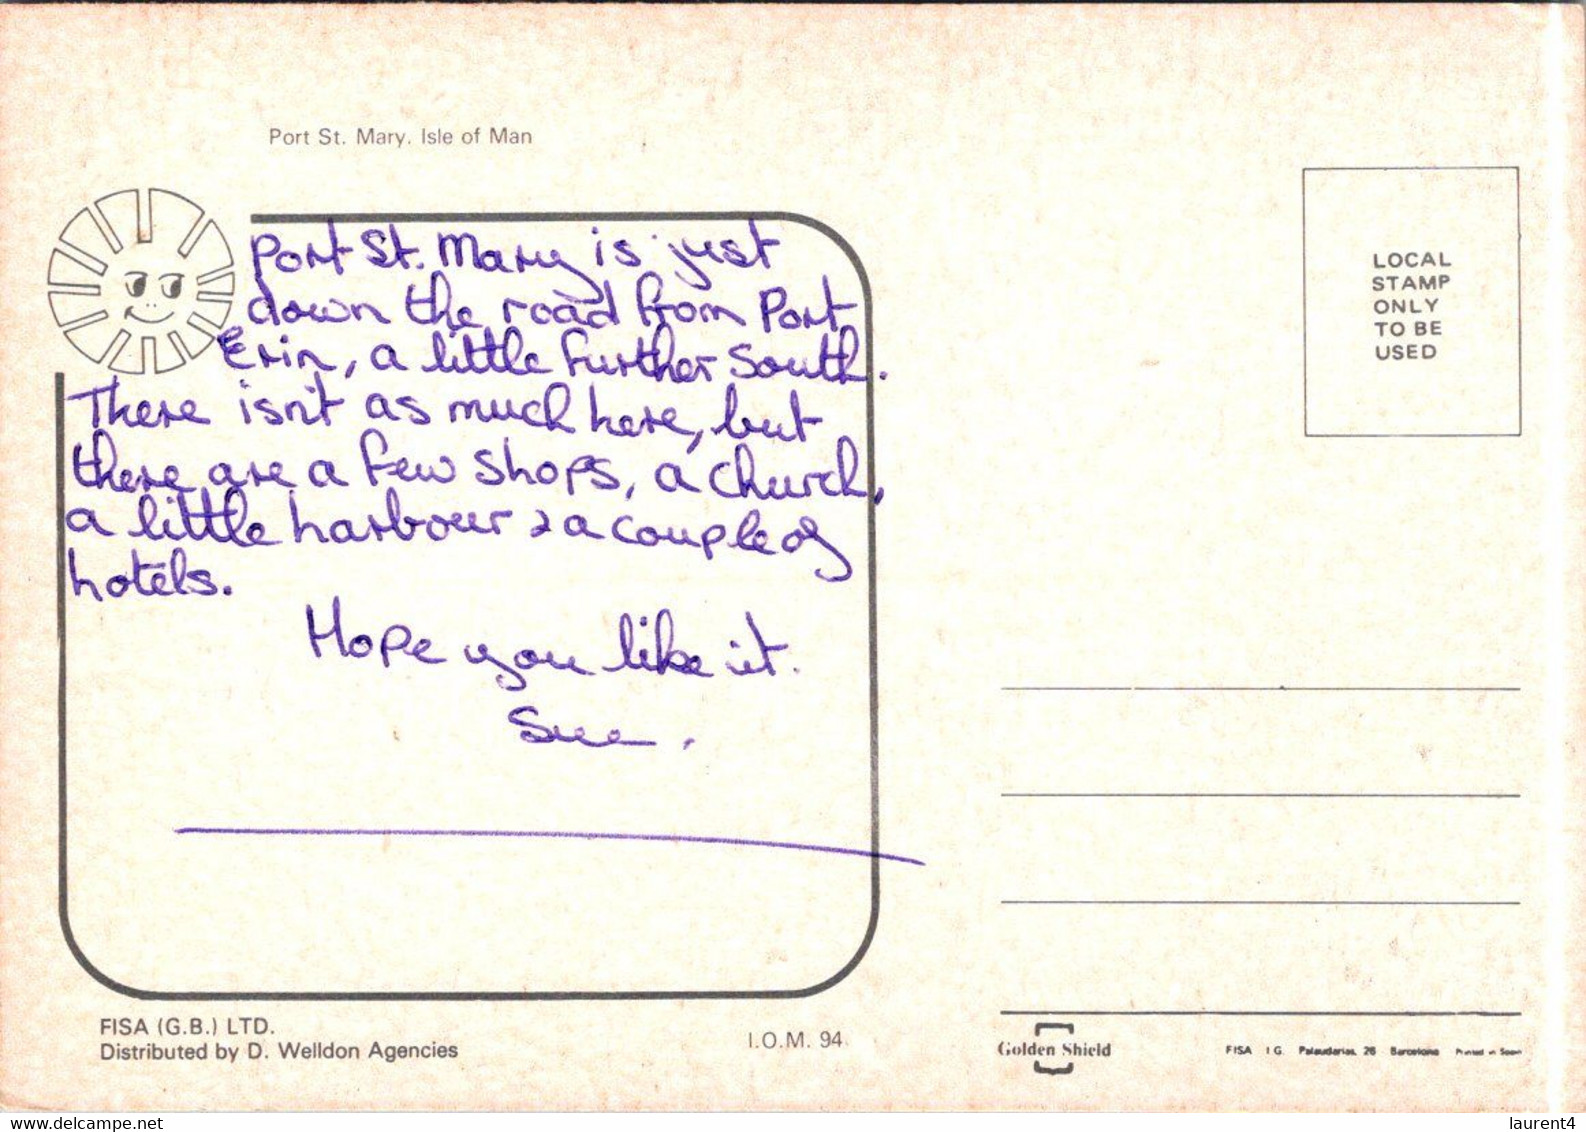 Port St. Mary. Isle of Man
Port St. Mary is just
down the road from Port
Erin, a little further South.
There isn't as much here, but
there are a few shops, a church,
a little harbour & a couple of
hotels.
Hope you like it.
Sue.
LOCAL
STAMP
ONLY
TO BE
USED
FISA (G.B.) LTD.
Distributed by D. Welldon Agencies
I.O.M. 94
Golden Shield
FISA I G. Palaudarias, 26 Barcelona Printed in Spain
delcampe.net
laurent4